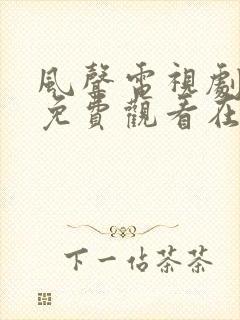 風聲電視劇
免費觀看在
下一佔茶茶